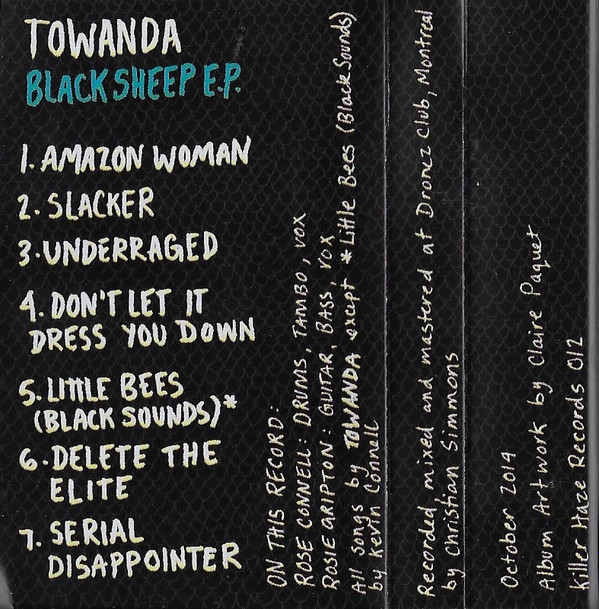 TOWANDA
BLACK SHEEP E.P.
1. AMAZON WOMAN
2. SLACKER
3. UNDERRAGED
4. DON'T LET IT
DRESS YOU DOWN
5. LITTLE BEES
(BLACK SOUNDS)*
6. DELETE THE
ELITE
7. SERIAL
DISAPPOINTER
ON THIS RECORD:
ROSE CONNELL: DRUMS, TAMBO, VOX
ROSIE GRIPTON: GUITAR, BASS, VOX
All songs by TOWANDA except *Little Bees (Black Sounds)
by Kevin Connell
Recorded, mixed and mastered at Dronez Club, Montreal
by Christian Simmons
October 2014
Album Artwork by Claire Paquet
Killer Haze Records 012